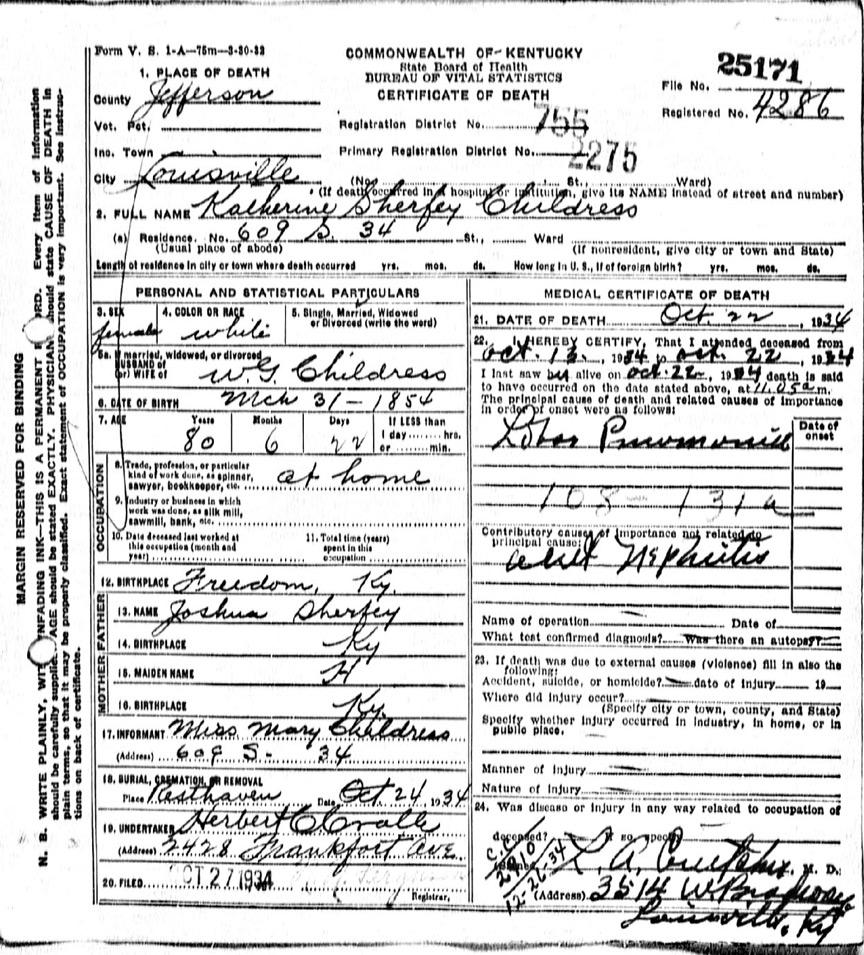 Form V. S. 1-A—75m—3-30-33
COMMONWEALTH OF KENTUCKY
State Board of Health
BUREAU OF VITAL STATISTICS
CERTIFICATE OF DEATH
File No. 25171
Registered No. 4286
Registration District No. 755
Primary Registration District No. 2275
1. PLACE OF DEATH
County Jefferson
Vot. Pct.
Inc. Town
City Louisville (No. St., Ward)
(If death occurred in a hospital or institution, give its NAME instead of street and number)
2. FULL NAME Katherine Sherfey Childress
(a) Residence. No. 609 S. 34 St., Ward
(Usual place of abode) (If nonresident, give city or town and State)
Length of residence in city or town where death occurred yrs. mos. ds. How long in U. S., if of foreign birth? yrs. mos. ds.
PERSONAL AND STATISTICAL PARTICULARS
3. SEX female
4. COLOR OR RACE white
5. Single, Married, Widowed or Divorced (write the word)
5a. If married, widowed, or divorced
HUSBAND of
(or) WIFE of W. G. Childress
6. DATE OF BIRTH Mch 31 - 1854
7. AGE Years Months Days If LESS than
80 6 22 1 day hrs.
or min.
OCCUPATION
8. Trade, profession, or particular
kind of work done, as spinner,
sawyer, bookkeeper, etc. at home
9. Industry or business in which
work was done, as silk mill,
sawmill, bank, etc.
10. Date deceased last worked at
this occupation (month and
year)
11. Total time (years)
spent in this
occupation
12. BIRTHPLACE Freedom, Ky.
FATHER
13. NAME Joshua Sherfey
14. BIRTHPLACE Ky
MOTHER
15. MAIDEN NAME H
16. BIRTHPLACE Ky.
17. INFORMANT Miss Mary Childress
(Address) 609 S- 34
18. BURIAL, CREMATION, OR REMOVAL
Place Resthaven Date Oct 24 1934
19. UNDERTAKER Herbert C Cralle
(Address) 2428 Frankfort Ave.
20. FILED OCT 27 1934
Registrar.
MEDICAL CERTIFICATE OF DEATH
21. DATE OF DEATH Oct. 22, 1934
22. I HEREBY CERTIFY, That I attended deceased from
Oct. 13, 1934 to Oct. 22, 1934
I last saw alive on Oct-22-, 1934 death is said
to have occurred on the date stated above, at 11.05 a m.
The principal cause of death and related causes of importance
in order of onset were as follows:
Date of onset
Lobar Pneumonia
108 - 131a
Contributory causes of importance not related to
principal cause:
acute Nephritis
Name of operation Date of
What test confirmed diagnosis? Was there an autopsy?
23. If death was due to external causes (violence) fill in also the
following:
Accident, suicide, or homicide? date of injury 19
Where did injury occur?
(Specify city or town, county, and State)
Specify whether injury occurred in industry, in home, or in
public place.
Manner of Injury
Nature of Injury
24. Was disease or injury in any way related to occupation of
deceased? If so, specify
12-26-34
M. D.
(Address) 3514 W. Broadway
Louisville, Ky
MARGIN RESERVED FOR BINDING
N. B. WRITE PLAINLY, WITH UNFADING INK—THIS IS A PERMANENT RECORD. Every item of information
should be carefully supplied. AGE should be stated EXACTLY. PHYSICIANS should state CAUSE OF DEATH in
plain terms, so that it may be properly classified. Exact statement of OCCUPATION is very important. See instruc-
tions on back of certificate.